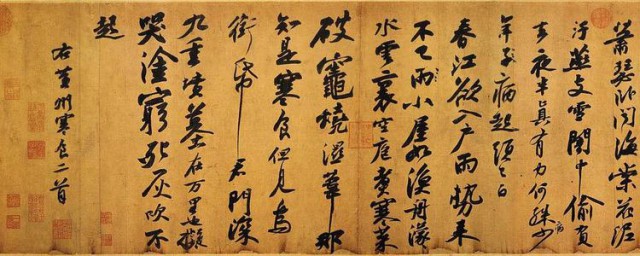 蕭瑟卧聞海棠花泥
汙燕支雪闇中偷負
去夜半真有力何殊少
病
年子病起頭已白
春江欲入戶雨勢来
不已雨小屋如漁舟濛〻
水雲裏空庖煮寒菜
破竈燒濕葦那
知是寒食但見烏
銜帋君門深
九重墳墓在万里也擬
哭塗窮死灰吹不
起
右黄州寒食二首